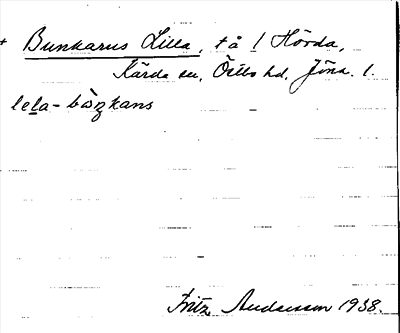 + Bunkarus Lilla, t å 1 Hörda,
Kärda sn, Östbo hd. Jönk. l.
lela-
Fritz Andersson 1938.